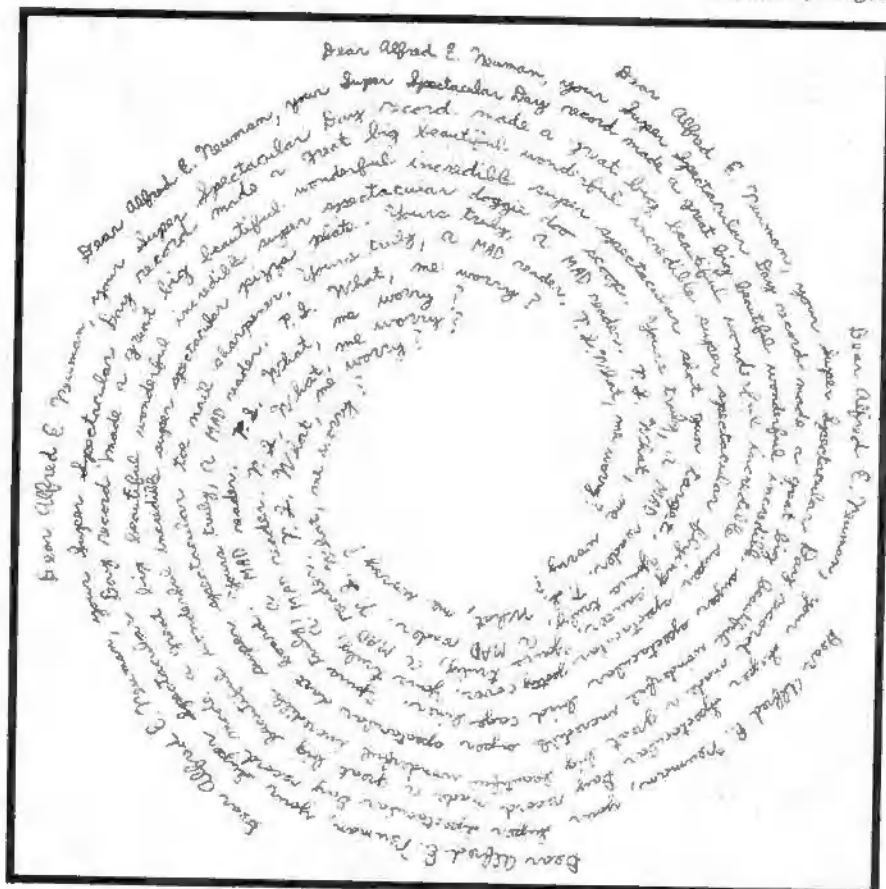 Dear Alfred E. Neuman, your Super Spectacular Day record made a great big beautiful wonderful incredible super spectacular dart board. Yours truly, a MAD reader. P.S. What, me worry?
Dear Alfred E. Neuman, your Super Spectacular Day record made a great big beautiful wonderful incredible super spectacular toe nail sharpener. Yours truly, a MAD reader. P.S. What, me worry?
Dear Alfred E. Neuman, your Super Spectacular Day record made a great big beautiful wonderful incredible super spectacular pizza plate. Yours truly, a MAD reader. P.S. What, me worry?
Dear Alfred E. Neuman, your Super Spectacular Day record made a great big beautiful wonderful incredible super spectacular doggie doo scoop. Yours truly, a MAD reader. P.S. What, me worry?
Dear Alfred E. Neuman, your Super Spectacular Day record made a great big beautiful wonderful incredible super spectacular gun target. Yours truly, a MAD reader. P.S. What, me worry?
Dear Alfred E. Neuman, your Super Spectacular Day record made a great big beautiful wonderful incredible super spectacular flying saucer. Yours truly, a MAD reader. P.S. What, me worry?
Dear Alfred E. Neuman, your Super Spectacular Day record made a great big beautiful wonderful incredible super spectacular cover. Yours truly, a MAD reader. P.S. What, me worry?
Dear Alfred E. Neuman, your Super Spectacular Day record made a great big beautiful wonderful incredible super spectacular bird cage liner. Yours truly, a MAD reader. P.S. What, me worry?